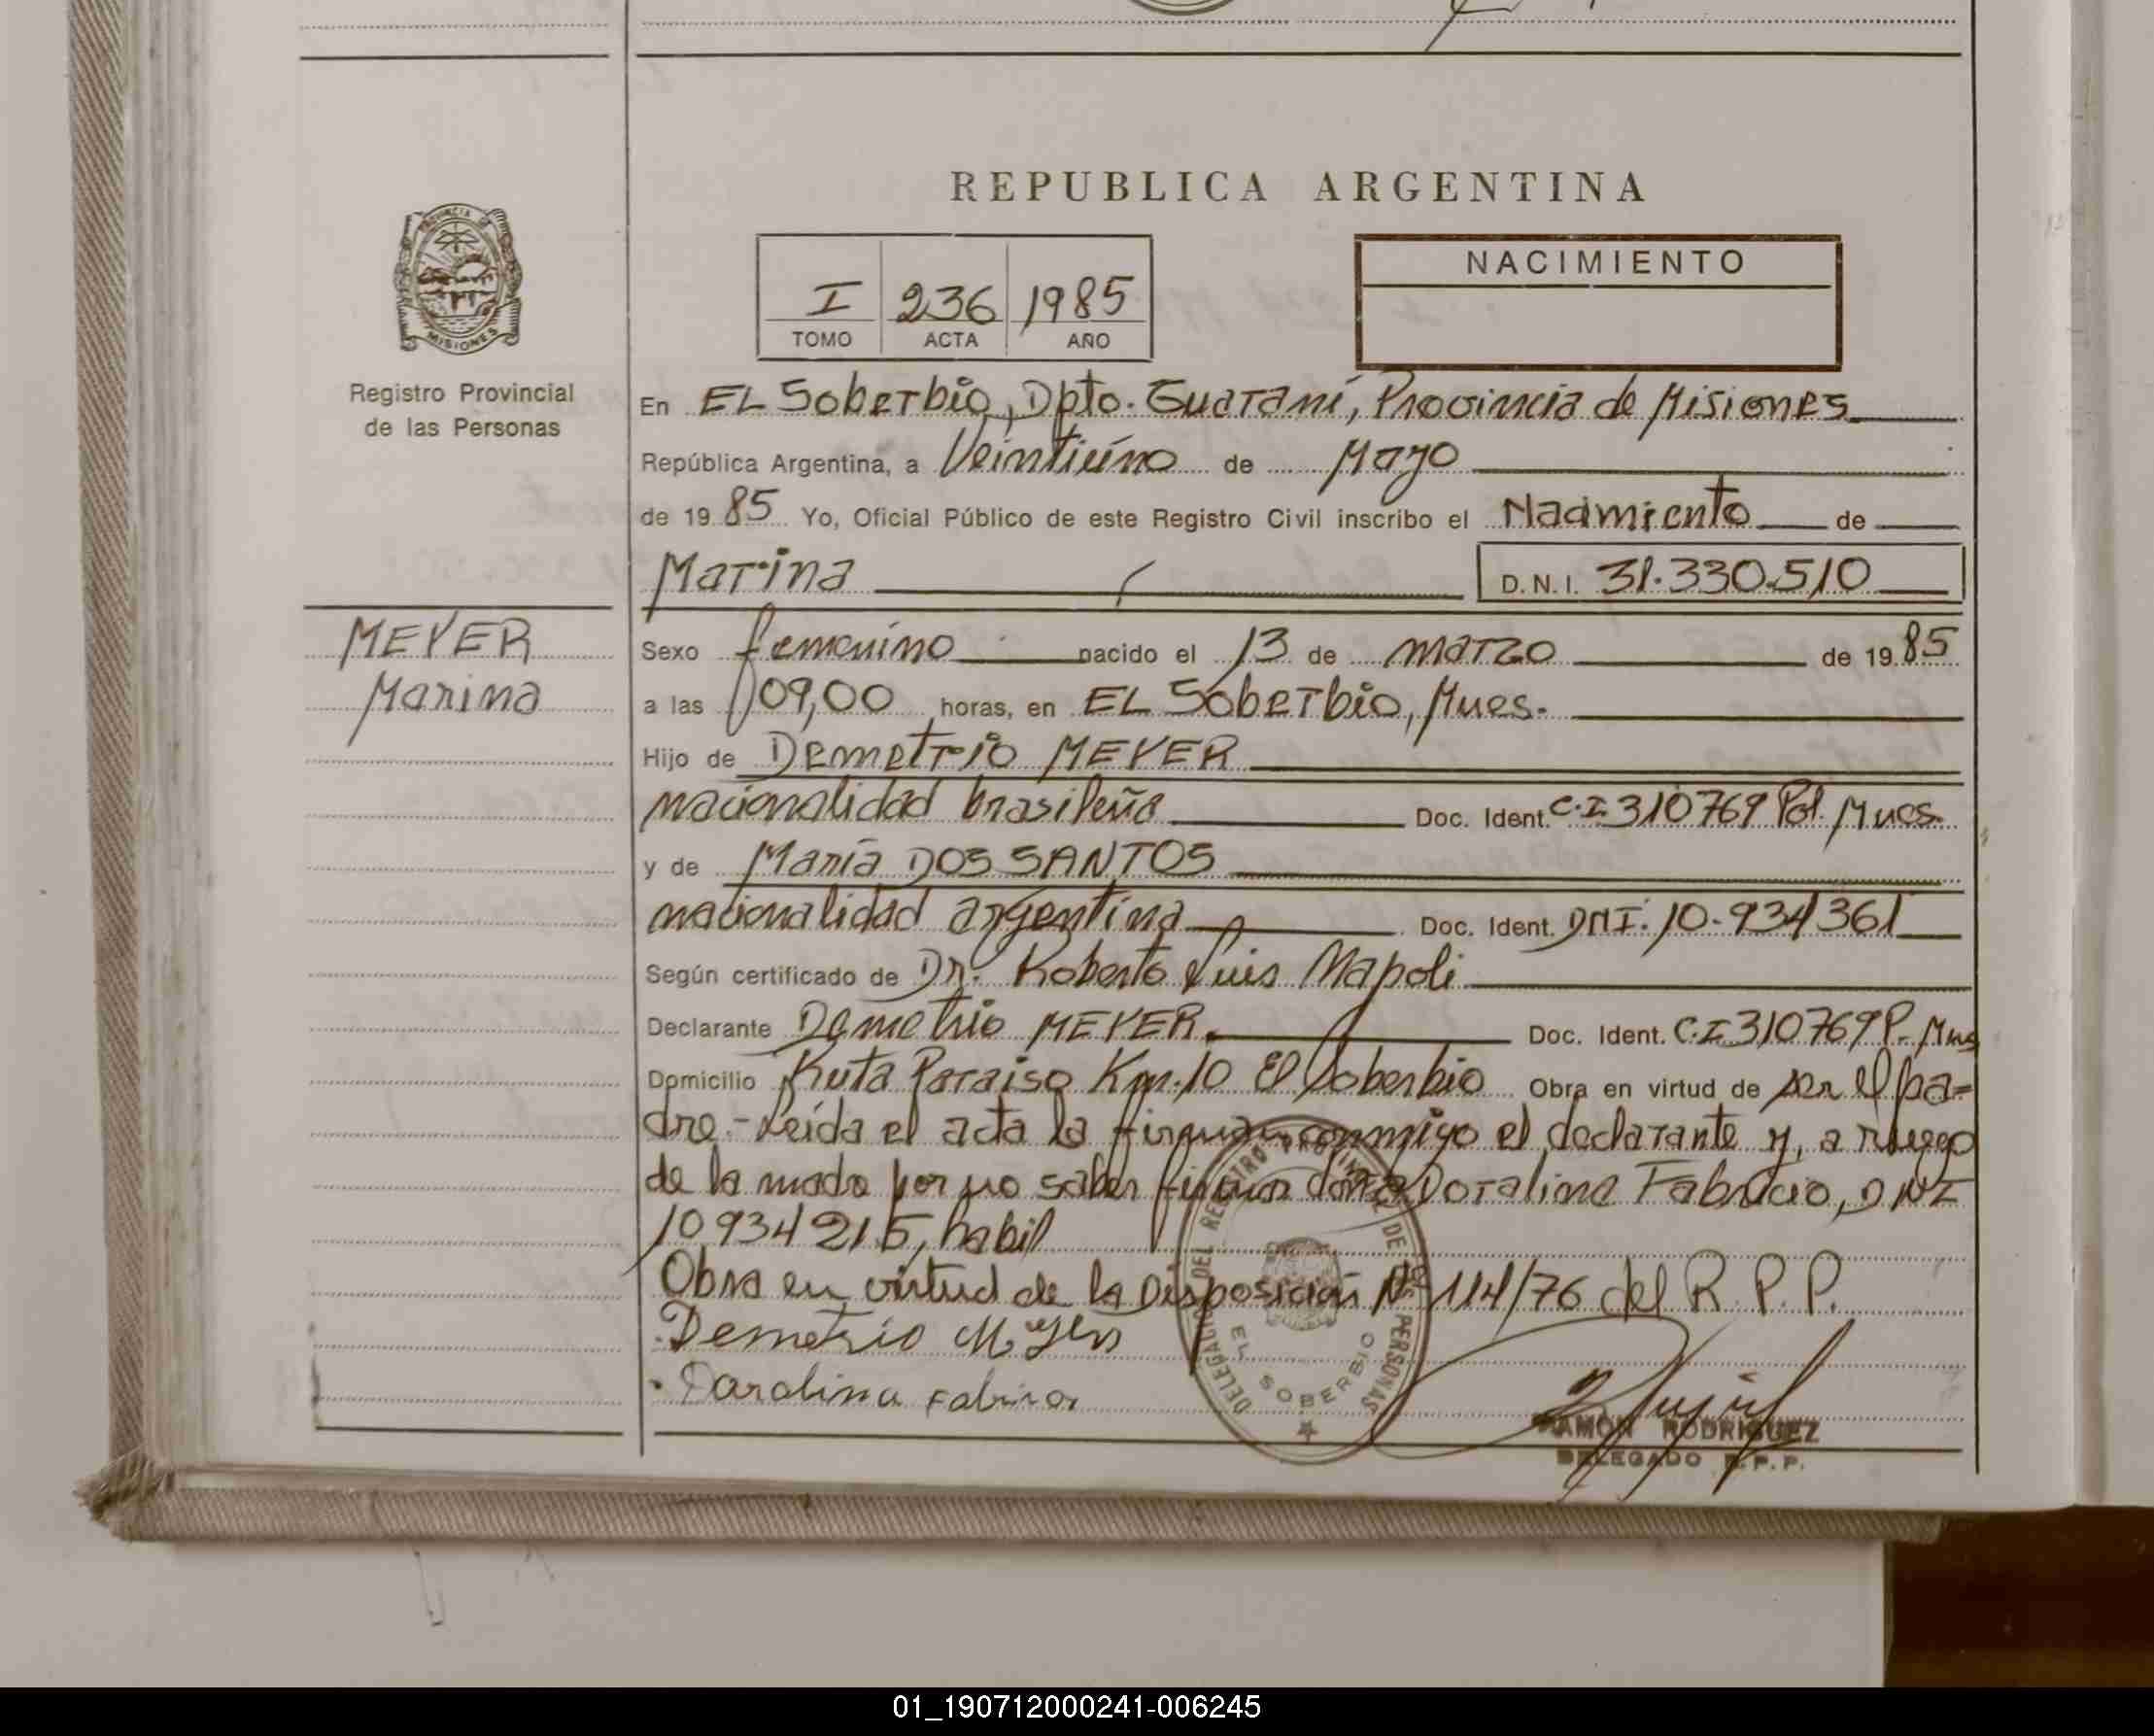 REPUBLICA ARGENTINA
PROVINCIA DE
MISIONES
Registro Provincial
de las Personas
I 236 1985
TOMO ACTA AÑO
NACIMIENTO
En EL Soberbio, Dpto. Guaraní, Provincia de Misiones
República Argentina, a Veintiúno de Mayo
de 1985 Yo, Oficial Público de este Registro Civil inscribo el Nacimiento de
Marina D.N.I. 31.330.510
MEYER
Marina
Sexo femenino nacido el 13 de marzo de 1985
a las 09,00 horas, en EL Soberbio, Mnes.
Hijo de Demetrio MEYER
nacionalidad brasileña Doc. Ident. C.I 310769 Pol. Mnes.
y de María DOS SANTOS
nacionalidad argentina Doc. Ident. DNI. 10.934361
Según certificado de Dr. Roberto Luis Napoli
Declarante Demetrio MEYER. Doc. Ident. C.I 310769 P. Mns
Domicilio Ruta Paraiso Km.10 El Soberbio Obra en virtud de ser el pa=
dre.- Leída el acta la firman conmigo el declarante y, a ruego
de la madre por no saber firmar doña Doralina Fabricio, DNI
10934215, habil
Obra en virtud de la Disposición Nº 114/76 del R.P.P.
Demetrio Meyer
Darolina
DELEGACIO DEL REGISTRO PROVINCIAL DE LAS PERSONAS
EL SOBERBIO
RAMÓN RODRIGUEZ
DELEGADO R.P.P.
01_190712000241-006245